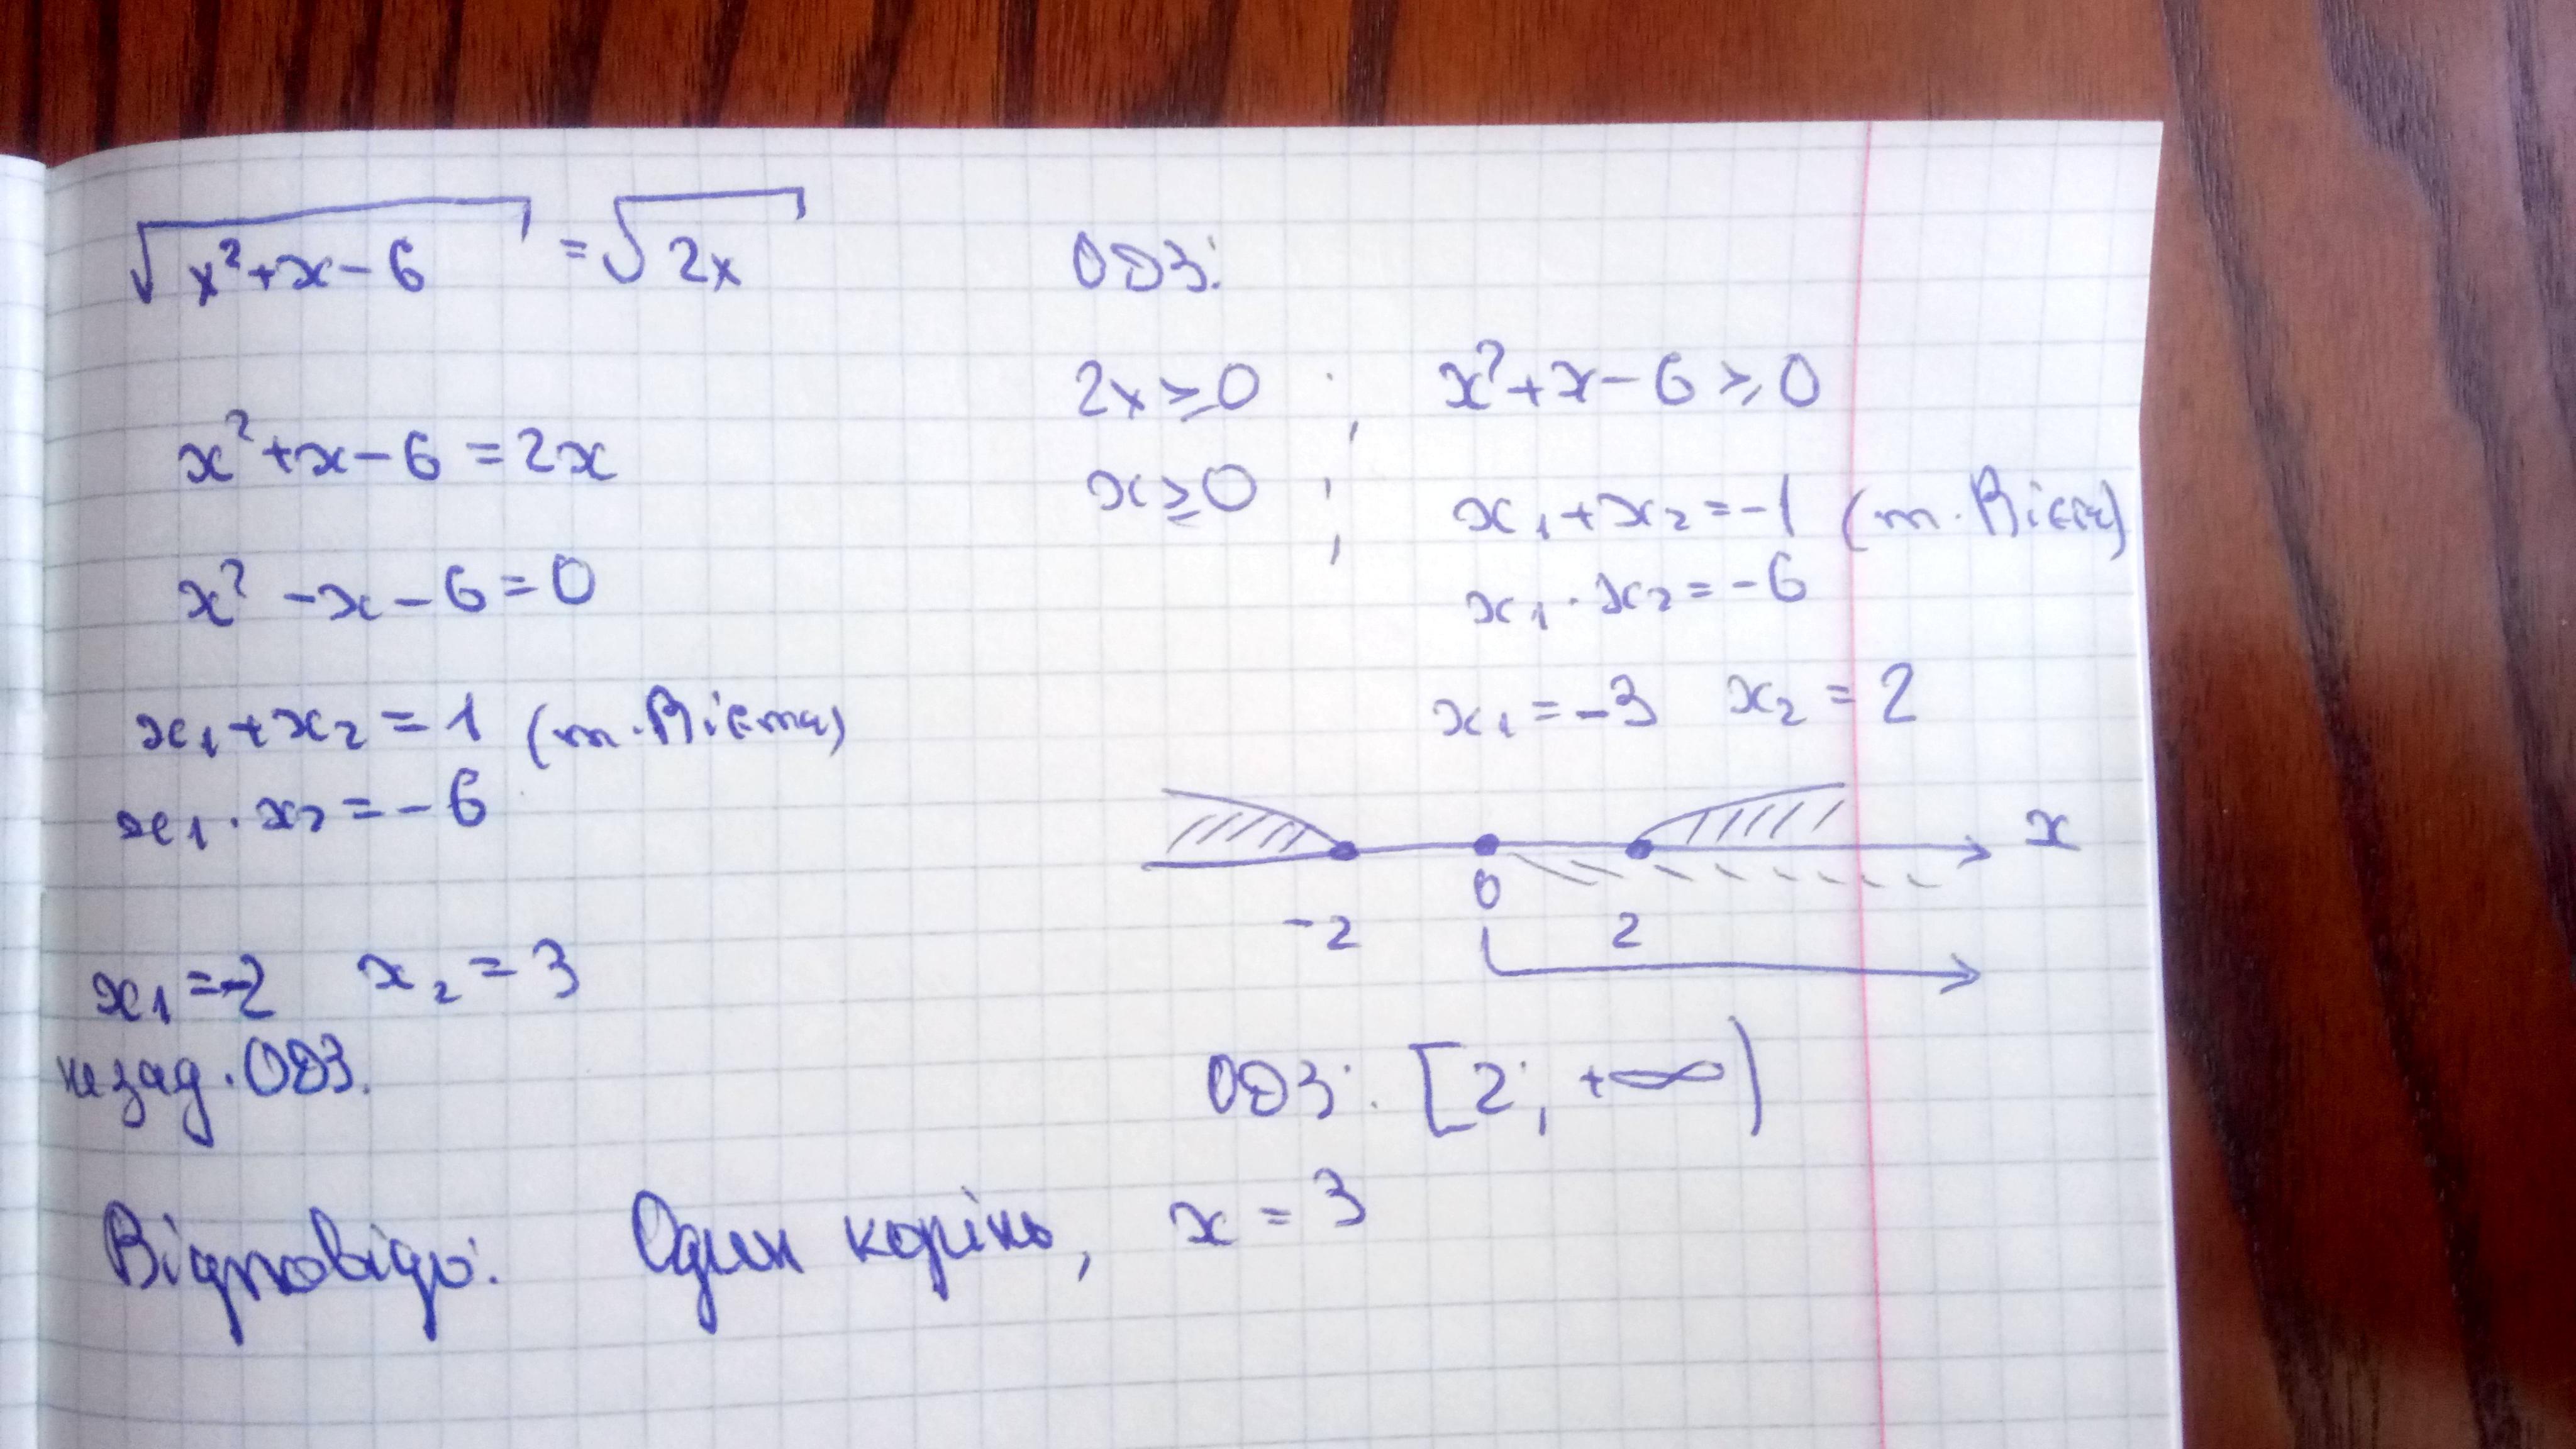 √(x²+x-6) = √(2x)
x²+x-6=2x
x²-x-6=0
x₁+x₂=1 (т.Вієта)
x₁·x₂=-6
x₁=-2 x₂=3
не зад. ОДЗ.
ОДЗ:
2x≥0 ; x²+x-6≥0
x≥0 ; x₁+x₂=-1 (т.Вієта)
x₁·x₂=-6
x₁=-3 x₂=2
x
-2 0 2
ОДЗ: [2; +∞)
Відповідь: Один корінь, x=3